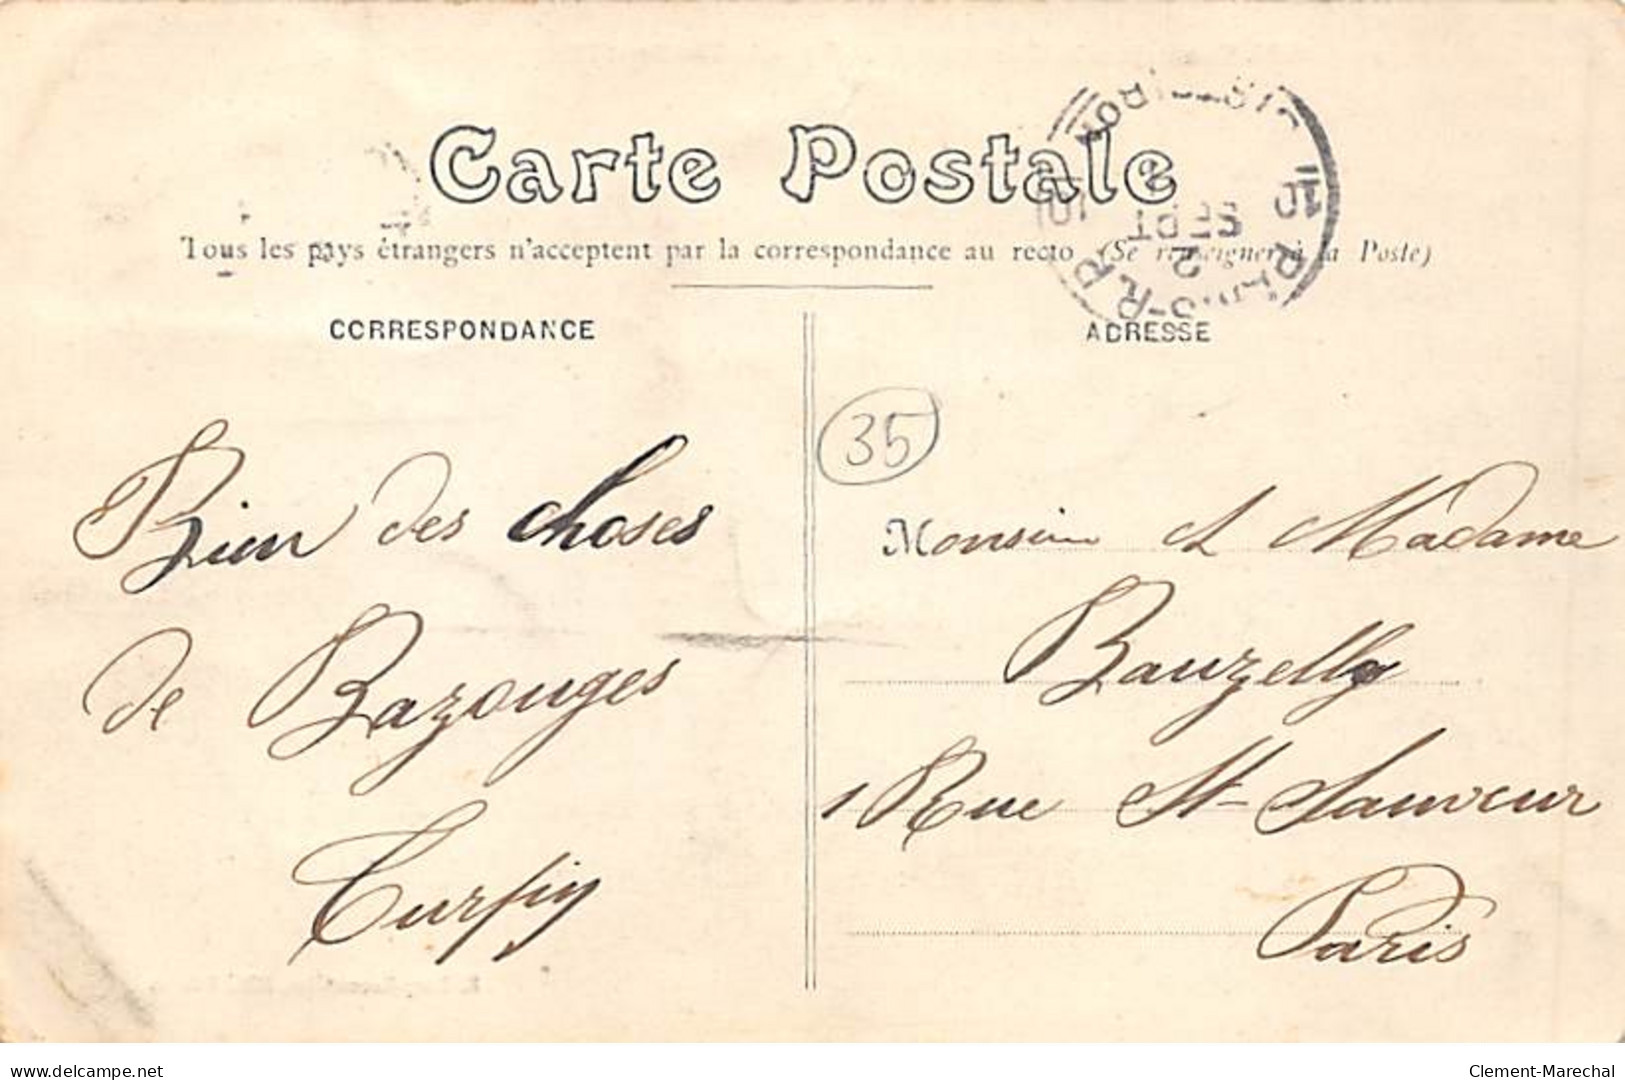 Carte Postale
Tous les pays étrangers n'acceptent par la correspondance au recto (Se renseigner à la Poste)
CORRESPONDANCE
ADRESSE
10 10
SEPT
2
35
Bien des choses
de Bazouges
Monsieur et Madame
Bauzelly
1 Rue St-Sauveur
Paris
delcampe.net
Clement-Marechal